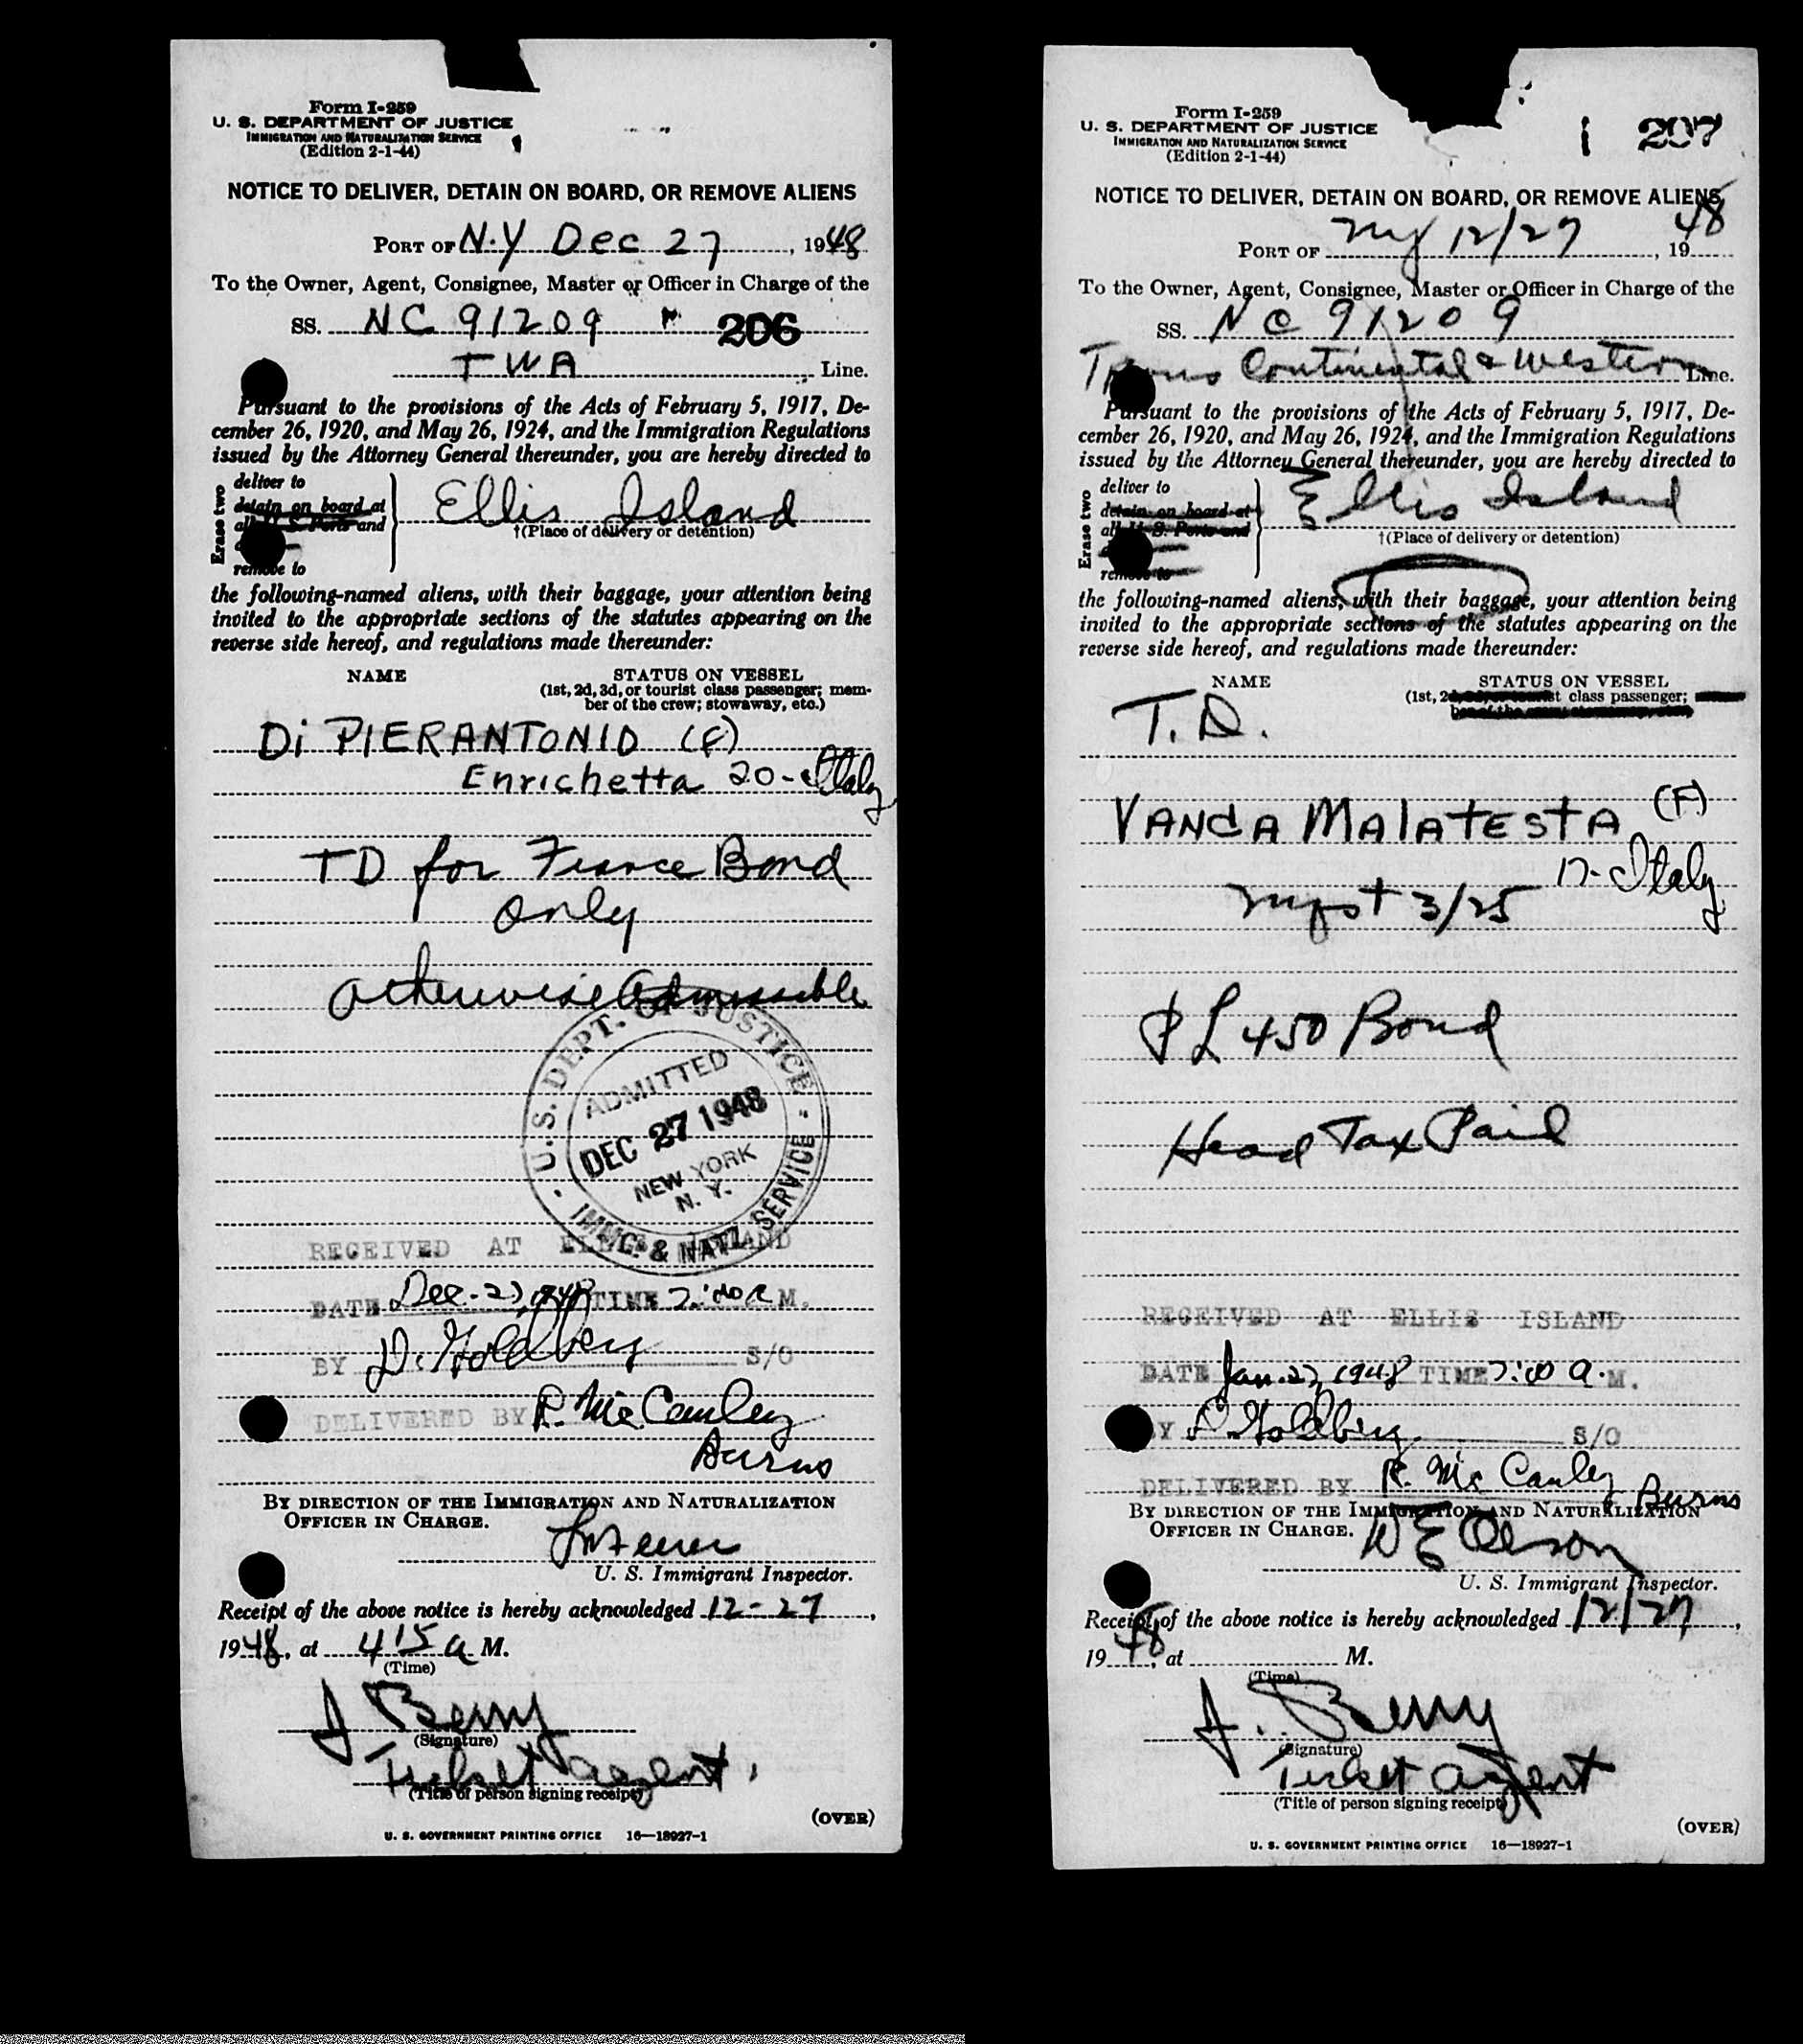 Form I-259
U. S. DEPARTMENT OF JUSTICE
IMMIGRATION AND NATURALIZATION SERVICE
(Edition 2-1-44)
NOTICE TO DELIVER, DETAIN ON BOARD, OR REMOVE ALIENS
PORT OF N.Y Dec 27, 1948
To the Owner, Agent, Consignee, Master or Officer in Charge of the
SS. NC 91209 206
TWA Line.
Pursuant to the provisions of the Acts of February 5, 1917, De-
cember 26, 1920, and May 26, 1924, and the Immigration Regulations
issued by the Attorney General thereunder, you are hereby directed to
Erase two
deliver to
detain on board at
all U. S. Ports and
remove to
Ellis Island
†(Place of delivery or detention)
the following-named aliens, with their baggage, your attention being
invited to the appropriate sections of the statutes appearing on the
reverse side hereof, and regulations made thereunder:
NAME STATUS ON VESSEL
(1st, 2d, 3d, or tourist class passenger; mem-
ber of the crew; stowaway, etc.)
Di PIERANTONIO (F)
Enrichetta 20 - Italy
TD for Fiance Bond
only
otherwise admissible
U.S. DEPT. OF JUSTICE - IMMG. & NATZ. SERVICE
ADMITTED
DEC 27 1948
NEW YORK
N. Y.
RECEIVED AT ELLIS ISLAND
DATE Dec - 27, 1948 TIME 7:00 A M.
BY D. Goldberg S/O
DELIVERED BY R. McCauley
Burns
BY DIRECTION OF THE IMMIGRATION AND NATURALIZATION
OFFICER IN CHARGE.
U. S. Immigrant Inspector.
Receipt of the above notice is hereby acknowledged 12-27,
1948, at 4 15 a M.
(Time)
J Berry
(Signature)
Ticket agent,
(Title of person signing receipt)
(OVER)
U. S. GOVERNMENT PRINTING OFFICE 16—18927-1
Form I-259
U. S. DEPARTMENT OF JUSTICE
IMMIGRATION AND NATURALIZATION SERVICE
(Edition 2-1-44)
207
NOTICE TO DELIVER, DETAIN ON BOARD, OR REMOVE ALIENS
PORT OF NY 12/27, 1948
To the Owner, Agent, Consignee, Master or Officer in Charge of the
SS. NC 91209
Trans Continental & Western Line.
Pursuant to the provisions of the Acts of February 5, 1917, De-
cember 26, 1920, and May 26, 1924, and the Immigration Regulations
issued by the Attorney General thereunder, you are hereby directed to
Erase two
deliver to
detain on board at
all U. S. Ports and
remove to
Ellis Island
†(Place of delivery or detention)
the following-named aliens, with their baggage, your attention being
invited to the appropriate sections of the statutes appearing on the
reverse side hereof, and regulations made thereunder:
NAME STATUS ON VESSEL
(1st, 2d class passenger;
T.D.
VANDA MALATESTA (F)
17 - Italy
3/25
PL 450 Bond
Head Tax Paid
RECEIVED AT ELLIS ISLAND
DATE Jan. 27, 1948 TIME 7:00 A. M.
BY D. Goldberg S/O
DELIVERED BY R. McCauley Burns
BY DIRECTION OF THE IMMIGRATION AND NATURALIZATION
OFFICER IN CHARGE.
W E Olson
U. S. Immigrant Inspector.
Receipt of the above notice is hereby acknowledged 12/27,
1948, at M.
(Time)
J. Berry
(Signature)
Ticket agent
(Title of person signing receipt)
(OVER)
U. S. GOVERNMENT PRINTING OFFICE 16—18927-1